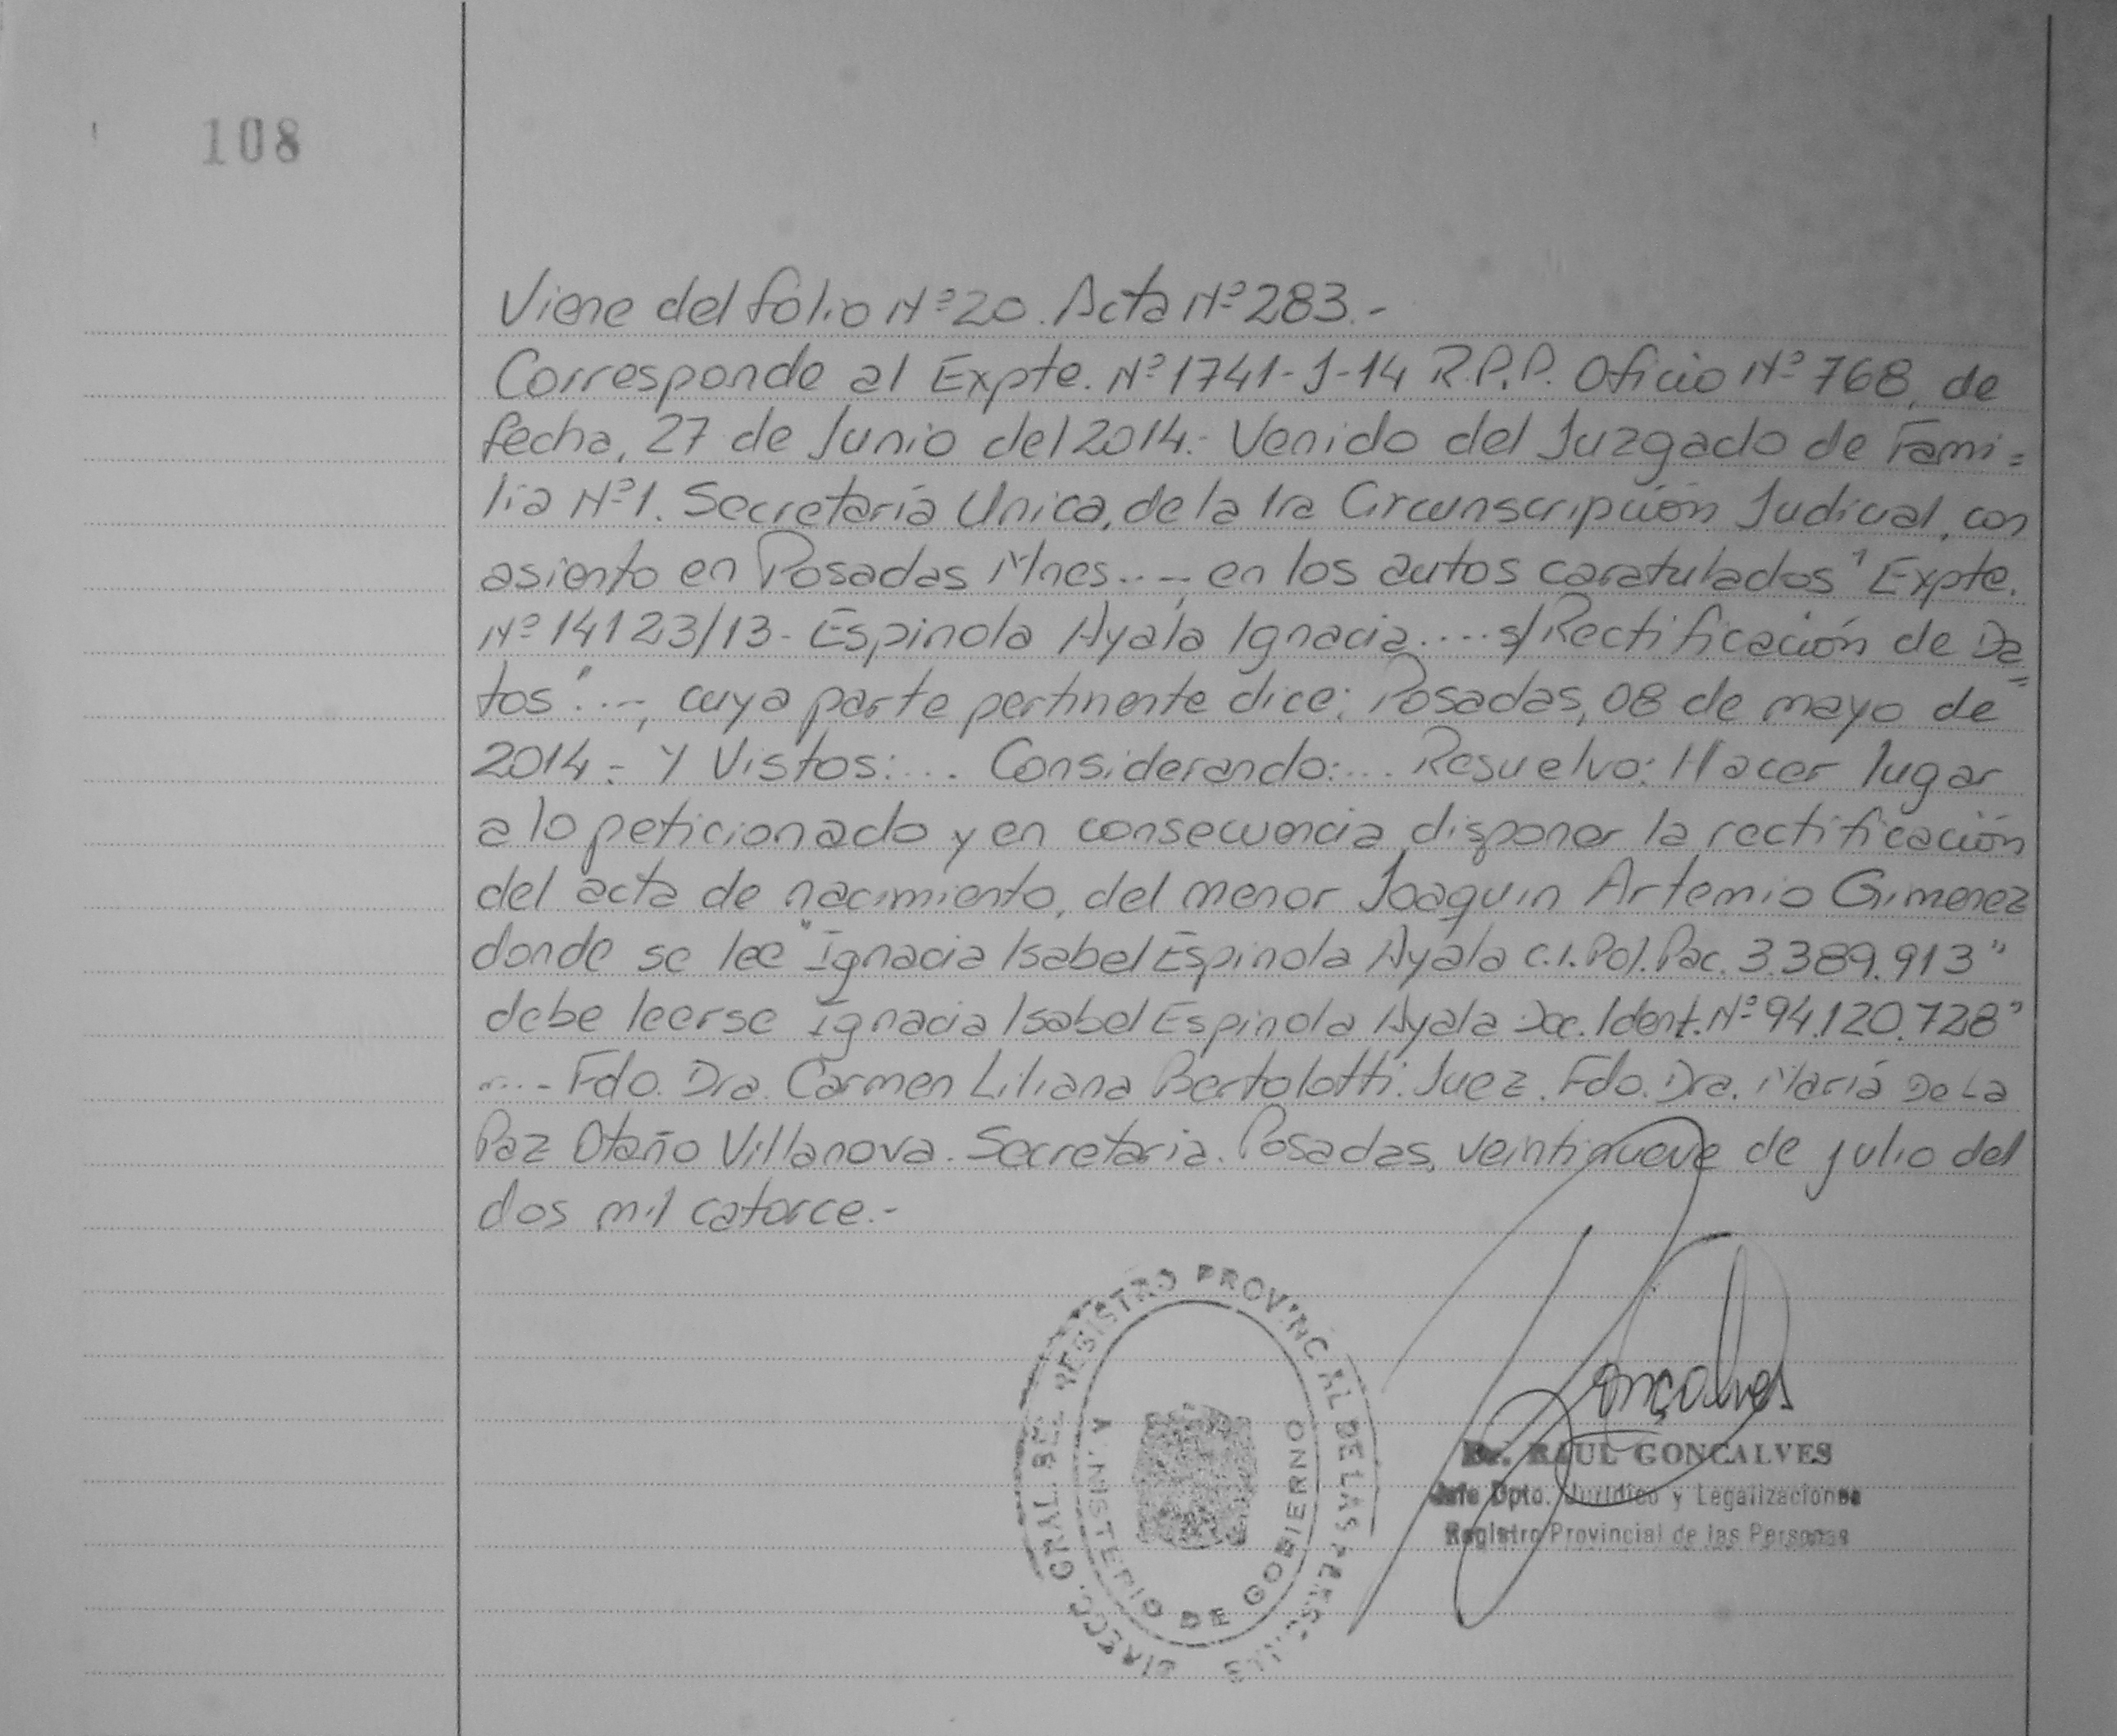 108
Viene del folio Nº 20. Acta Nº 283.-
Corresponde al Expte. Nº 1741-J-14 R.P.P. Oficio Nº 768, de
fecha, 27 de Junio del 2014.- Venido del Juzgado de Fami=
lia Nº1. Secretaría Unica, de la 1ra Circunscripción Judicial, con
asiento en Posadas Mnes...-, en los autos caratulados "Expte.
Nº 14123/13- Espinola Ayala Ignacia....s/Rectificación de Da=
tos"...-, cuya parte pertinente dice: Posadas, 08 de mayo de
2014.- Y Vistos:... Considerando:... Resuelvo: Hacer lugar
a lo peticionado y en consecuencia disponer la rectificación
del acta de nacimiento, del menor Joaquin Artemio Gimenez
donde se lee "Ignacia Isabel Espinola Ayala C.I. Pol. Pac. 3.389.913"
debe leerse Ignacia Isabel Espinola Ayala Doc. Ident. Nº 94.120.728"
....- Fdo. Dra. Carmen Liliana Bertolotti. Juez. Fdo. Dra. Mariá De La
Paz Otaño Villanova. Secretaria. Posadas, veintinueve de julio del
dos mil catorce.-
DIRECC. GRAL DEL REGISTRO PROVINCIAL DE LAS PERSONAS
MINISTERIO DE GOBIERNO
Gonçalves
Dr. RAUL GONCALVES
Jefe Dpto. Jurídico y Legalizaciones
Registro Provincial de las Personas